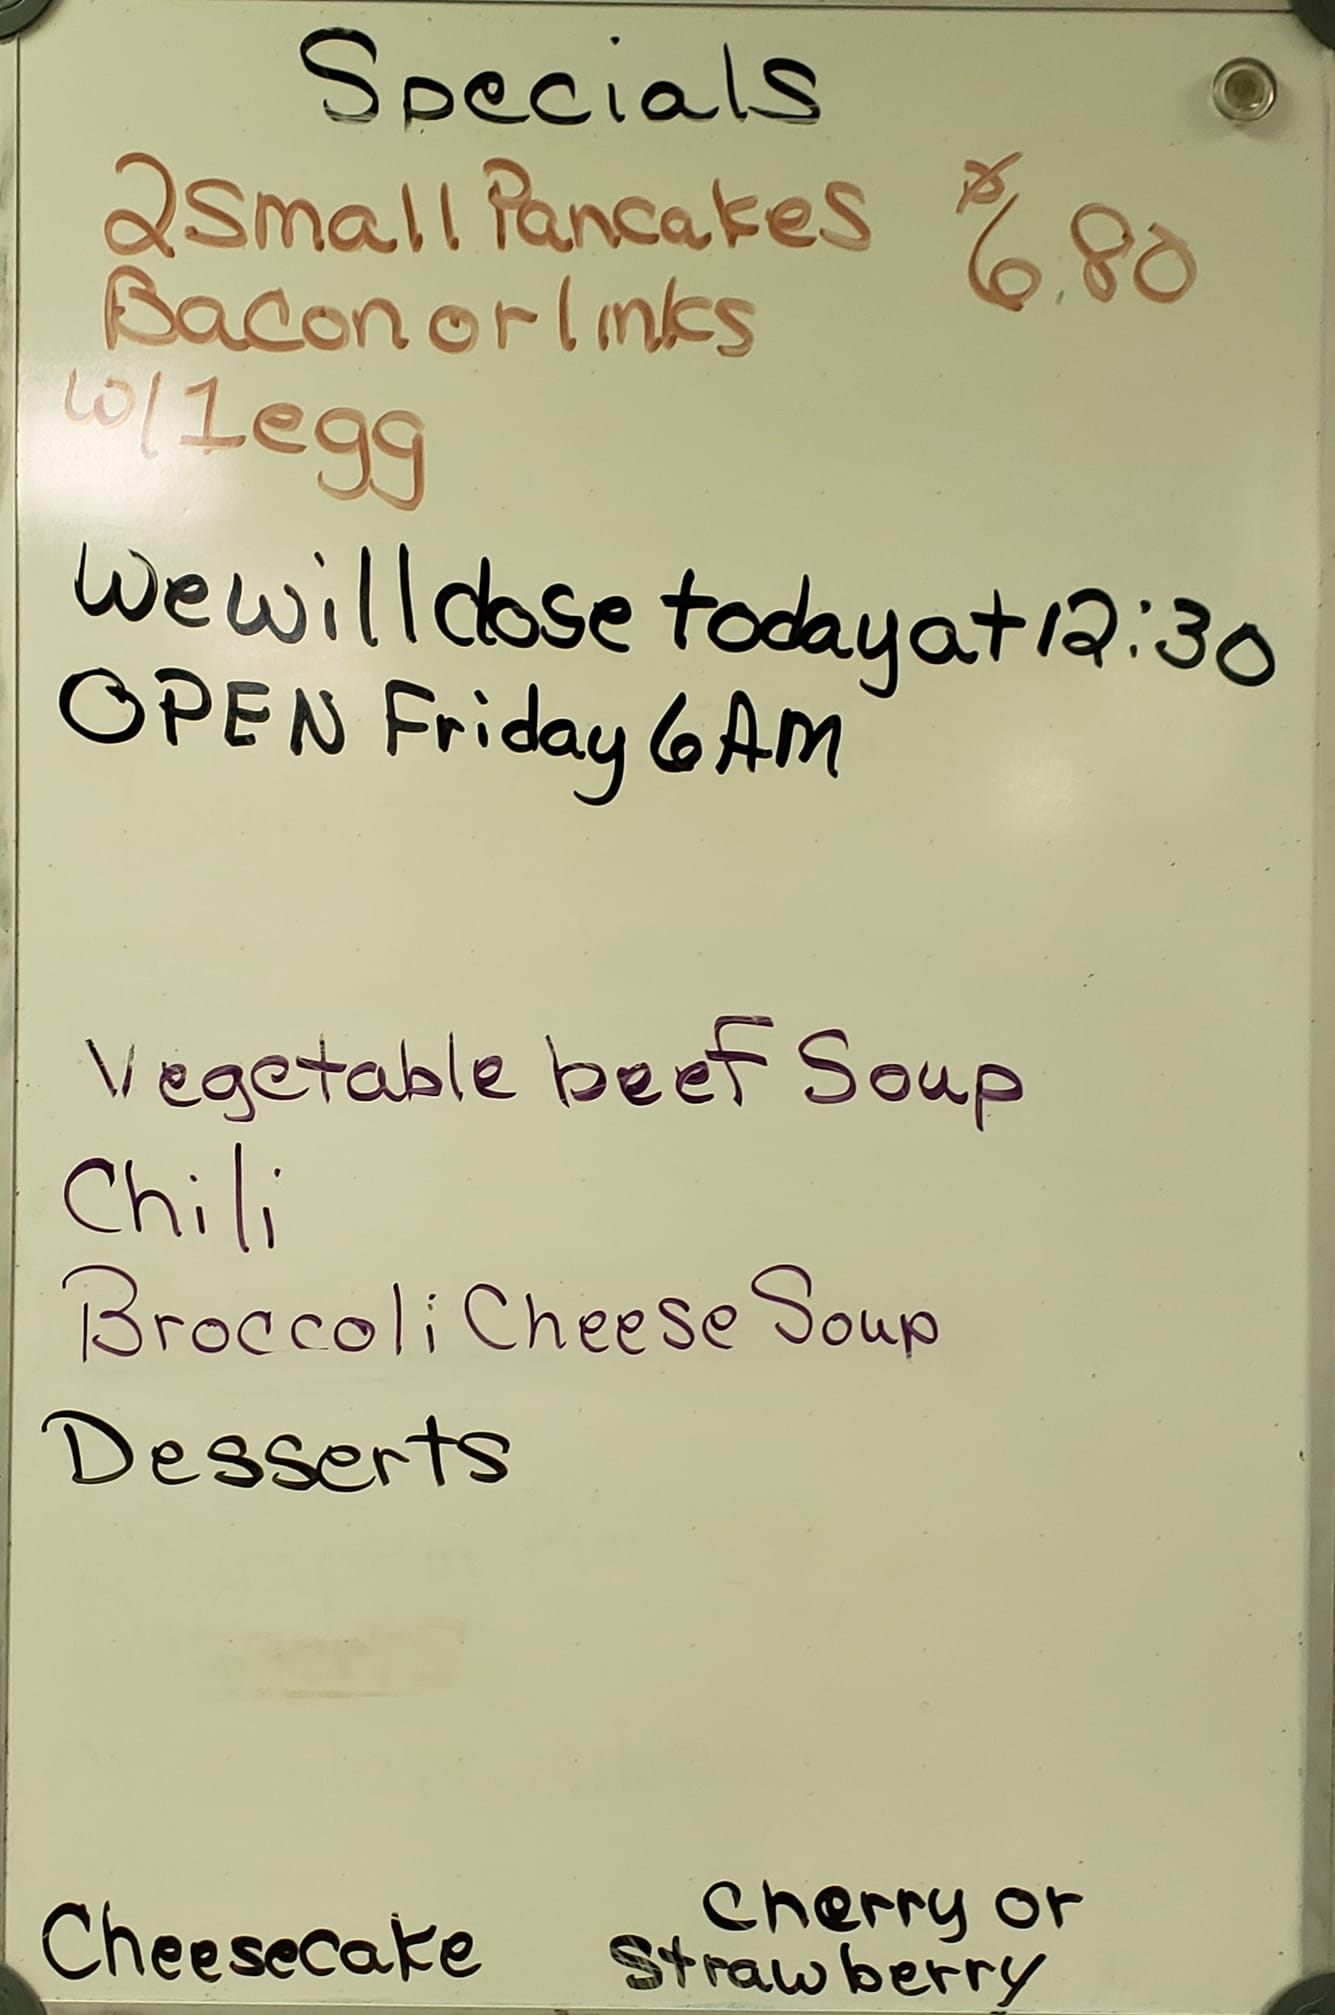 Specials
2 Small Pancakes $6.80
Bacon or links
w/ 1 egg
We will close today at 12:30
OPEN Friday 6 AM
Vegetable beef Soup
Chili
Broccoli Cheese Soup
Desserts
Cheesecake Cherry or
Strawberry